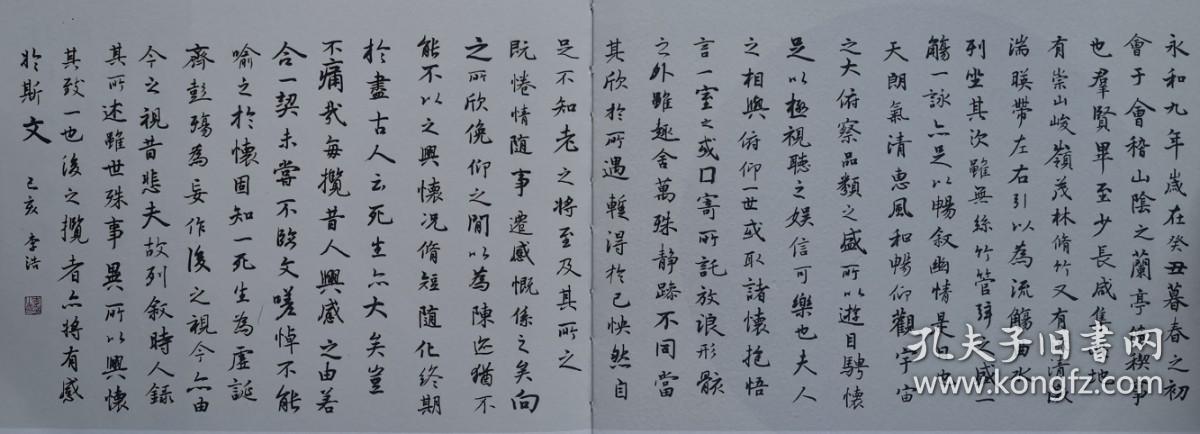 永和九年歲在癸丑暮春之初
會于會稽山陰之蘭亭脩禊事
也羣賢畢至少長咸集此地
有崇山峻嶺茂林脩竹又有清流激
湍暎帶左右引以為流觴曲水
列坐其次雖無絲竹管弦之盛一
觴一詠亦足以暢叙幽情是日也
天朗氣清惠風和暢仰觀宇宙
之大俯察品類之盛所以遊目騁懷
足以極視聽之娛信可樂也夫人
之相與俯仰一世或取諸懷抱悟
言一室之或因寄所託放浪形骸
之外雖趣舍萬殊静躁不同當
其欣於所遇暫得於己怏然自
足不知老之將至及其所之
既惓情随事遷感慨係之矣向
之所欣俛仰之間以為陳迹猶不
能不以之興懷况脩短随化終期
於盡古人云死生亦大矣豈
不痛哉每攬昔人興感之由若
合一契未嘗不臨文嗟悼不能
喻之於懷固知一死生為虛誕
齊彭殤為妄作後之視今亦由
今之視昔悲夫故列叙時人録
其所述雖世殊事異所以興懷
其致一也後之攬者亦將有感
於斯文 己亥 李浩
孔夫子旧书网
www.kongfz.com